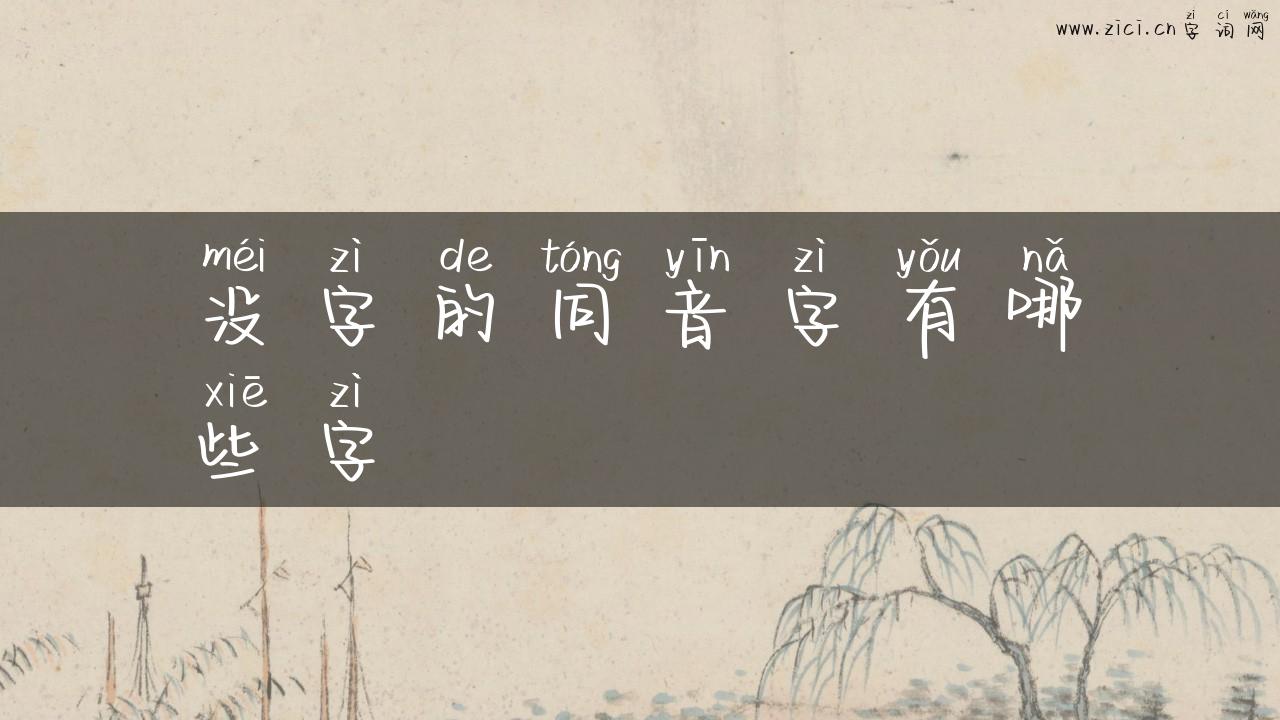 www.zici.cn zì cí wǎng 字词网
méi zì de tóng yīn zì yǒu nǎ
没字的同音字有哪
xiē zì
些字